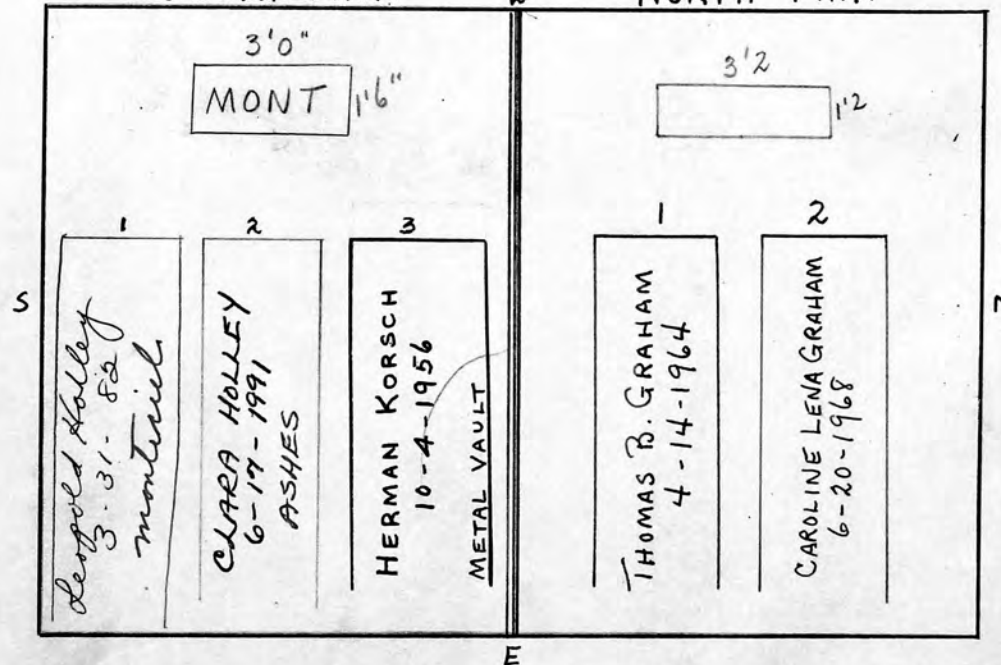 3'0"
MONT
1'6"
3'2
1'2
1
2
3
1
2
S
Leopold Holley
3-31-82
CLARA HOLLEY
6-17-1991
ASHES
HERMAN KORSCH
10-4-1956
METAL VAULT
THOMAS B. GRAHAM
4-14-1964
CAROLINE LENA GRAHAM
6-20-1968
E